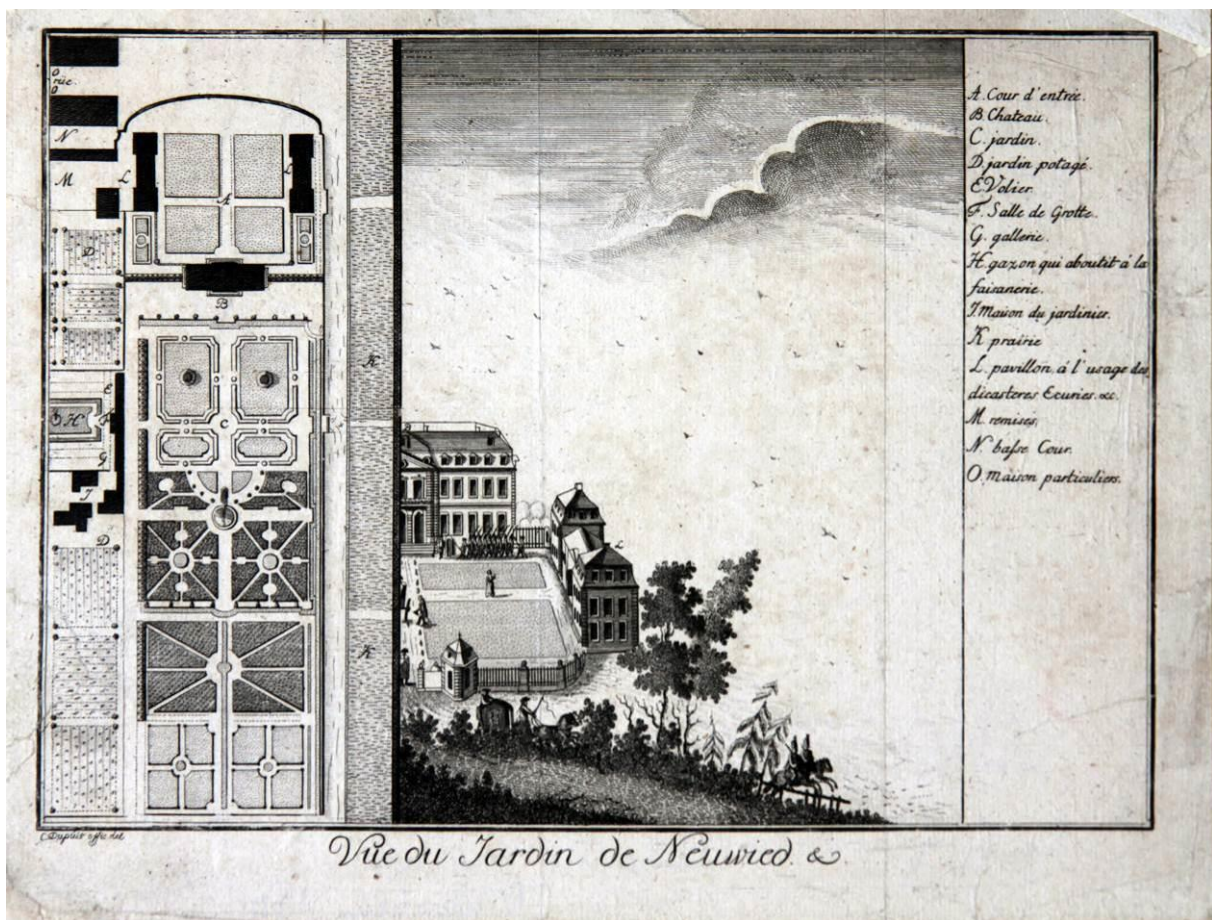 O
rüe.
O
N
M
L
L
A
D
B
K
E
H
F
C
G
J
D
K
A. Cour d'entrée.
B. Chateau.
C. jardin.
D. jardin potagé.
E. Volier.
F. Salle de Grotte.
G. gallerie.
H. gazon qui aboutit à la
faisanerie.
J. Maison du jardinier.
K prairie
L. pavillon à l'usage des
dicasteres Ecuries. &c.
M. remises.
N. basse Cour.
O. maison particuliers.
L
C. Dupuis del
Vüe du Jardin de Neuwied. &.